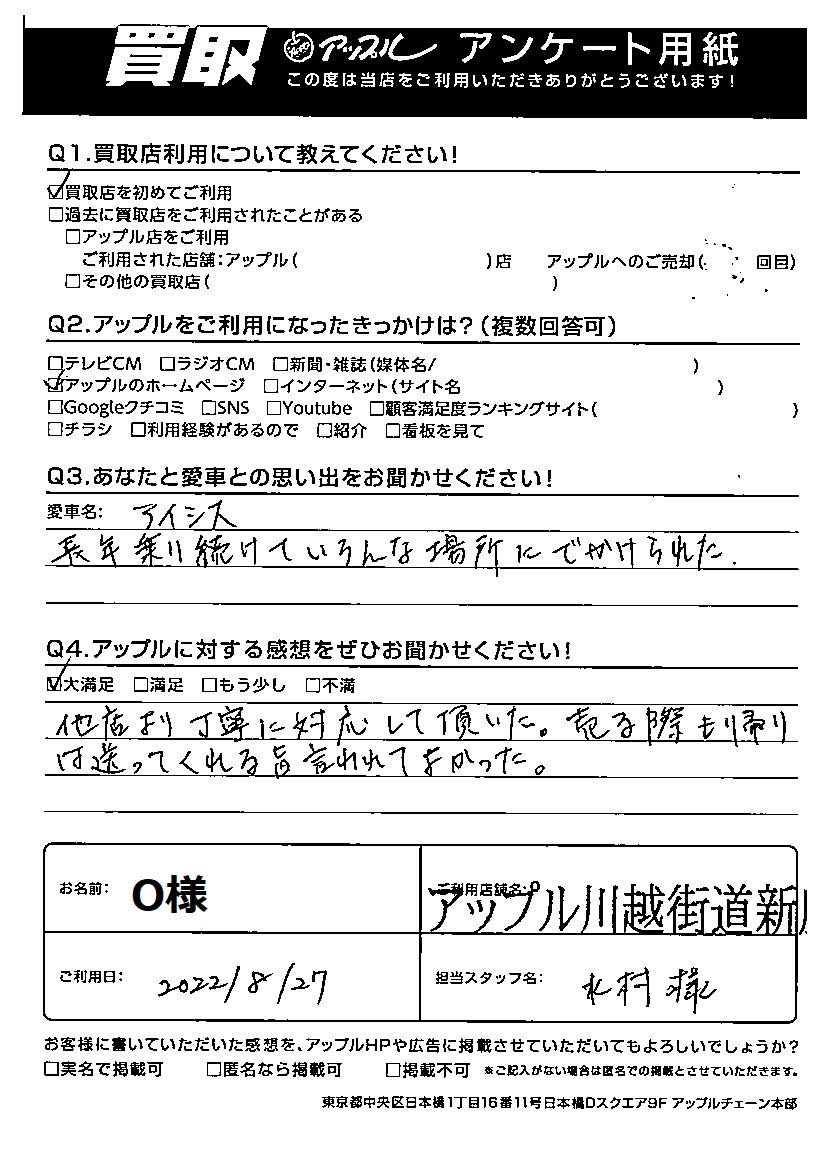 買取 アップル アンケート用紙
この度は当店をご利用いただきありがとうございます!
Q1.買取店利用について教えてください!
☑買取店を初めてご利用
□過去に買取店をご利用されたことがある
□アップル店をご利用
ご利用された店舗:アップル( )店 アップルへのご売却( 回目)
□その他の買取店( )
Q2.アップルをご利用になったきっかけは?(複数回答可)
□テレビCM □ラジオCM □新聞・雑誌(媒体名/ )
☑アップルのホームページ □インターネット(サイト名 )
□Googleクチコミ □SNS □Youtube □顧客満足度ランキングサイト( )
□チラシ □利用経験があるので □紹介 □看板を見て
Q3.あなたと愛車との思い出をお聞かせください!
愛車名: アイシス
長年乗り続けていろんな場所にでかけられた.
Q4.アップルに対する感想をぜひお聞かせください!
☑大満足 □満足 □もう少し □不満
他店より丁寧に対応して頂いた。売る際も帰り
は送ってくれる旨言われてよかった。
お名前: O様
ご利用店舗名:
アップル川越街道新
ご利用日: 2022/8/27
担当スタッフ名: 木村様
お客様に書いていただいた感想を、アップルHPや広告に掲載させていただいてもよろしいでしょうか?
□実名で掲載可 □匿名なら掲載可 □掲載不可 ※ご記入がない場合は匿名での掲載とさせていただきます。
東京都中央区日本橋1丁目16番11号日本橋Dスクエア9F アップルチェーン本部